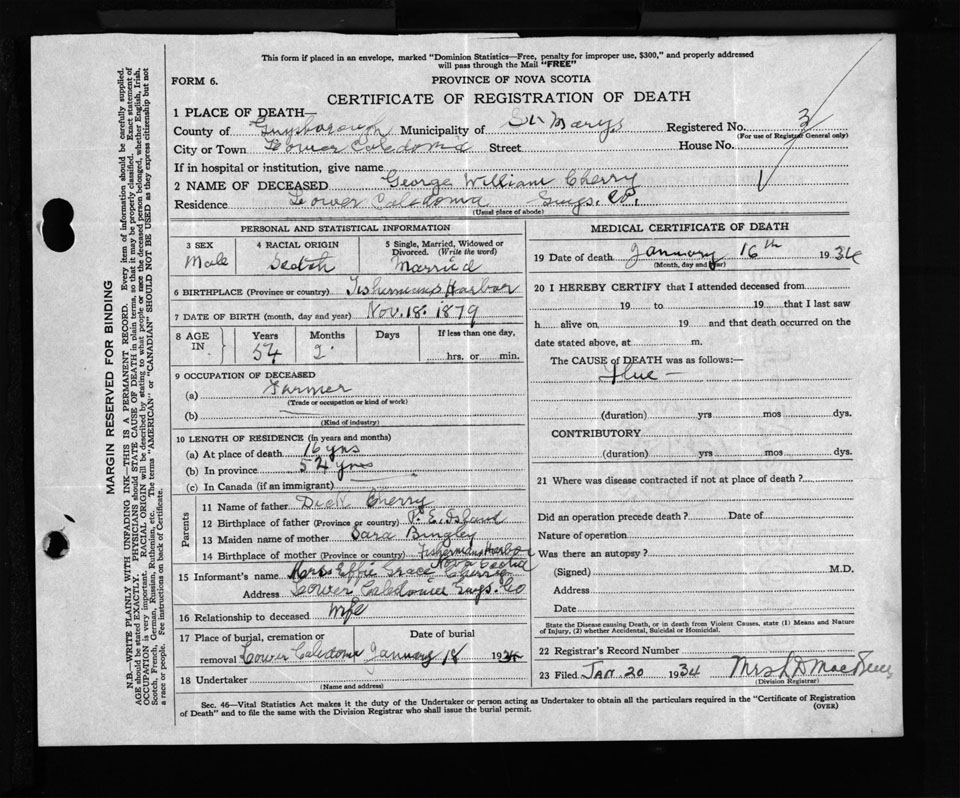 This form if placed in an envelope, marked "Dominion Statistics—Free, penalty for improper use, $300," and properly addressed
will pass through the Mail "FREE"
FORM 6.
PROVINCE OF NOVA SCOTIA
CERTIFICATE OF REGISTRATION OF DEATH
1 PLACE OF DEATH—
County of Guysborough Municipality of St Marys Registered No. 3
(For use of Registrar General only)
City or Town Lower Caledonia Street House No.
If in hospital or institution, give name
2 NAME OF DECEASED George William Cherry
Residence Lower Caledonia Guys. Co.
(Usual place of abode)
PERSONAL AND STATISTICAL INFORMATION
3 SEX
Male
4 RACIAL ORIGIN
Scotch
5 Single, Married, Widowed or
Divorced. (Write the word)
Married
6 BIRTHPLACE (Province or country) Fishermans Harbor
7 DATE OF BIRTH (month, day and year) Nov. 18. 1879
8 AGE
IN
Years
54
Months
2
Days
If less than one day,
hrs. or min.
9 OCCUPATION OF DECEASED
(a) Farmer
(Trade or occupation or kind of work)
(b)
(Kind of industry)
10 LENGTH OF RESIDENCE (in years and months)
(a) At place of death 16 yrs
(b) In province 54 yrs
(c) In Canada (if an immigrant)
Parents
11 Name of father Dick Cherry
12 Birthplace of father (Province or country) P. E. Island
13 Maiden name of mother Sara Bingley
14 Birthplace of mother (Province or country) Fishermans Harbor
Nova Scotia
15 Informant's name Mrs Effie Grace Cherry
Address Lower Caledonia Guys. Co
16 Relationship to deceased Wife
17 Place of burial, cremation or
removal Lower Caledonia
Date of burial
January 18 1934
18 Undertaker
(Name and address)
MEDICAL CERTIFICATE OF DEATH
19 Date of death January 16th 1934
(Month, day and year)
20 I HEREBY CERTIFY that I attended deceased from
19 to 19 that I last saw
h alive on 19 and that death occurred on the
date stated above, at m.
The CAUSE of DEATH was as follows:—
Flue —
(duration) yrs mos dys.
CONTRIBUTORY
(duration) yrs mos dys.
21 Where was disease contracted if not at place of death?
Did an operation precede death? Date of
Nature of operation
Was there an autopsy?
(Signed) M.D.
Address
Date
State the Disease causing Death, or in death from Violent Causes, state (1) Means and Nature
of Injury, (2) whether Accidental, Suicidal or Homicidal.
22 Registrar's Record Number
23 Filed Jan 20 1934 Mrs
(Division Registrar)
Sec. 46—Vital Statistics Act makes it the duty of the Undertaker or person acting as Undertaker to obtain all the particulars required in the "Certificate of Registration
of Death" and to file the same with the Division Registrar who shall issue the burial permit.
(OVER)
MARGIN RESERVED FOR BINDING
N.B.—WRITE PLAINLY WITH UNFADING INK—THIS IS A PERMANENT RECORD. Every item of information should be carefully supplied.
AGE should be stated EXACTLY. PHYSICIANS should STATE CAUSE OF DEATH in plain terms, so that it may be properly classified. Exact statement of
OCCUPATION is very important. RACIAL ORIGIN will be described by stating to what people or race the deceased person belonged, whether English, Irish,
Scotch, French, German, Russian, Ruthenian, etc. The terms "AMERICAN" or "CANADIAN" SHOULD NOT BE USED as they express citizenship but not
a race or people. Fee instructions on back of Certificate.